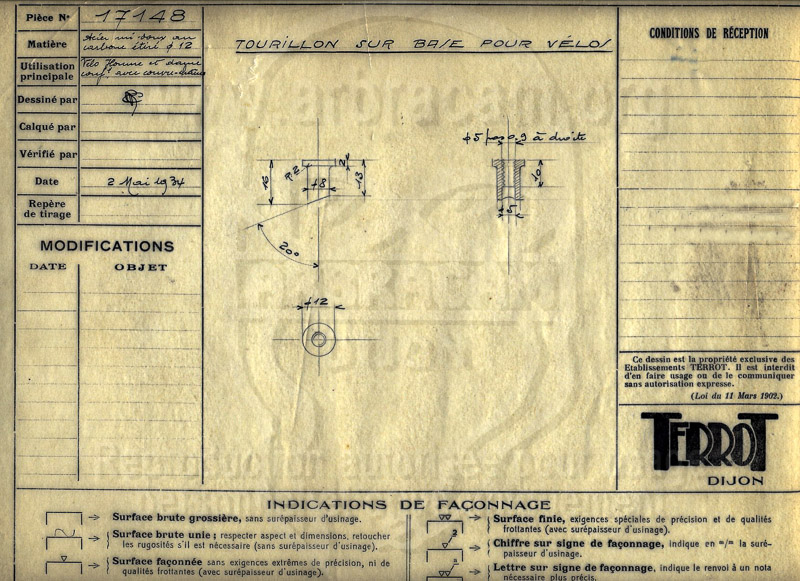 Pièce Nº 17148
Matière Acier mi-doux au
carbone étiré ϕ 12
Utilisation principale Vélo Homme et dame
conf. avec couvre
Dessiné par
Calqué par
Vérifié par
Date 2 Mai 1934
Repère de tirage
MODIFICATIONS
DATE OBJET
TOURILLON SUR BASE POUR VÉLOS
16
R.2
ϕ8
2
13
20°
ϕ12
ϕ5 pas 0.9 à droite
10
5
CONDITIONS DE RÉCEPTION
Ce dessin est la propriété exclusive des
Etablissements TERROT. Il est interdit
d'en faire usage ou de le communiquer
sans autorisation expresse.
(Loi du 11 Mars 1902.)
TERROT
DIJON
INDICATIONS DE FAÇONNAGE
Surface brute grossière, sans surépaisseur d'usinage.
Surface brute unie; respecter aspect et dimensions, retoucher
les rugosités s'il est nécessaire (sans surépaisseur d'usinage).
Surface façonnée sans exigences extrêmes de précision, ni de
qualités frottantes (avec surépaisseur d'usinage).
Surface finie, exigences spéciales de précision et de qualités
frottantes (avec surépaisseur d'usinage).
Chiffre sur signe de façonnage, indique en =/= la suré-
paisseur d'usinage.
Lettre sur signe de façonnage, indique le renvoi à un nota
nécessaire plus précis.